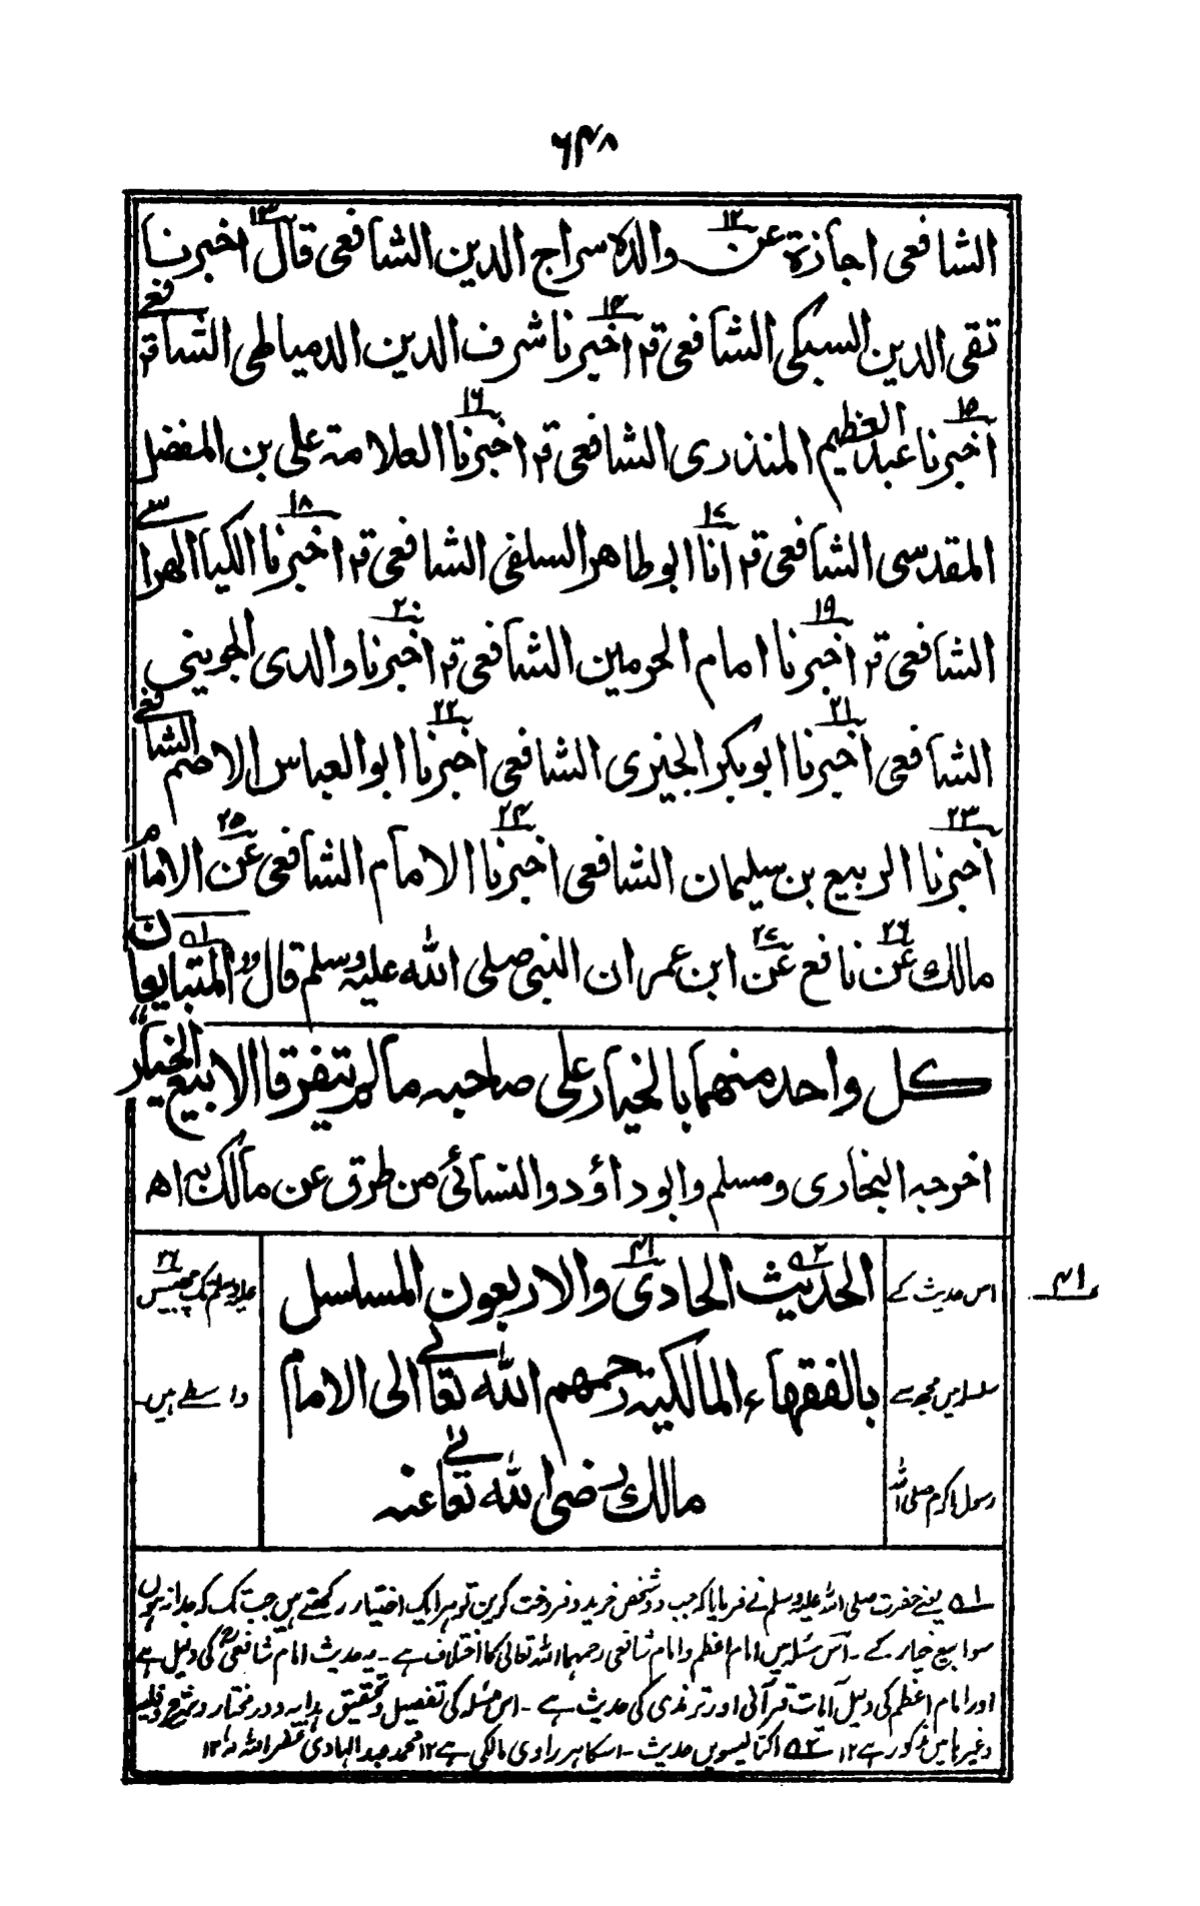 ٦٤٨
الشافعی اجازة عن۱۲ والدہ سراج الدین الشافعی قال۱۳ اخبرنا
تقی الدین السبکی الشافعی قم اخبرنا۱۴ شرف الدین الدمیاطی الشافعے قم
اخبرنا۱۵ عبد العظیم المنذری الشافعی قم اخبرنا۱۶ العلامة علی بن المفضل
المقدسی الشافعی قم انا۱۷ ابو طاھر السلفی الشافعی قم اخبرنا۱۸ الکیا الھراسے
الشافعی قم اخبرنا۱۹ امام الحرمین الشافعی قم اخبرنا۲۰ والدی الجوینی
الشافعی اخبرنا۲۱ ابوبکر الجیزی الشافعی اخبرنا۲۲ ابو العباس الاصم الشافعے
اخبرنا۲۳ الربیع بن سلیمان الشافعی اخبرنا۲۴ الامام الشافعی عن۲۵ الامام
مالک عن۲۶ نافع عن۲۷ ابن عمر ان النبی صلی اللہ علیہ وسلم قال "المتبایعان۵۱
کل واحد منھما بالخیار علی صاحبہ مالم یتفرقا الا بیع الخیار"
اخرجہ البخاری ومسلم وابو داؤد والنسائی من طرق عن مالک بہ اھ
الحدیث۵۲ الحادی۴۱ والاربعون المسلسل
بالفقھاء المالکیة رحمھم اللہ تعالیٰ الی الامام
مالک رضی اللہ تعالیٰ عنہ
۴۱
اس حدیث کے
سلسلہ میں مجھ سے
رسول اکرم صلی اللہ
علیہ وسلم تک چھبیس۲۶
واسطے ہیں۔
۵۱ یعنے حضرت صلی اللہ علیہ وسلم نے فرمایا کہ جب دو شخص خرید و فروخت کریں تو ہر ایک اختیار رکھتے ہیں جب تک کہ جدا نہ ہوں
سوا بیع خیار کے ۔ اس مسئلہ میں امام اعظم و امام شافعی رحمہما اللہ تعالی کا اختلاف ہے ۔ یہ حدیث امام شافعیؒ کی دلیل ہے
اور امام اعظم کی دلیل آیات قرآنی اور ترمذی کی حدیث ہے ۔ اس مسئلہ کی تفصیل و تحقیق ہدایہ و در مختار و شرح وقایہ
وغیرہا میں مذکور ہے ۱۲ ۵۲ اکتالیسویں حدیث ۔ اسکا ہر راوی مالکی ہے ۱۲ محمد عبد الہادی غفر اللہ لہ ۱۲